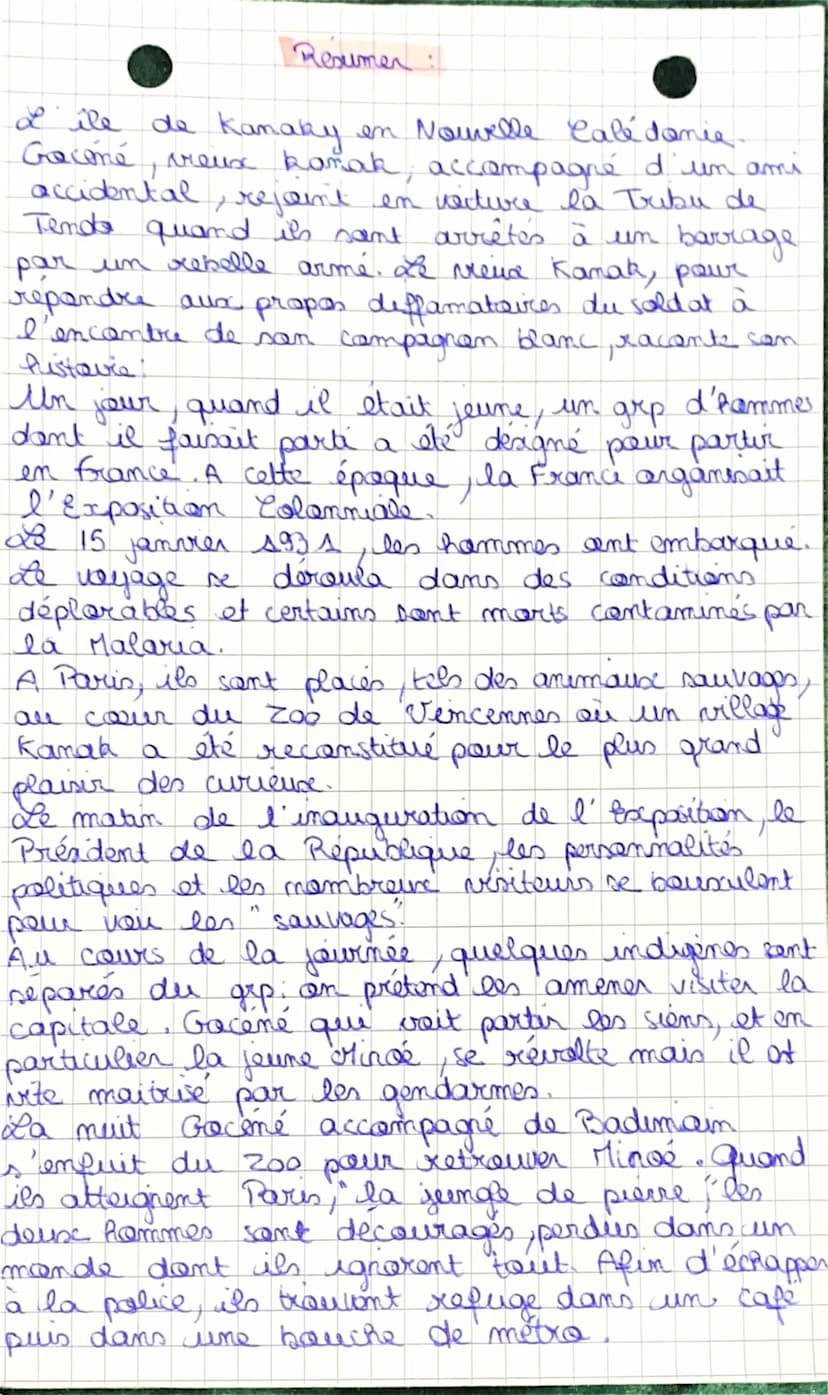 Résumer :
L' île de Kanaky en Nouvelle Calédonie.
Gocéné, vieux kanak, accompagné d'un ami
accidental, rejoint en voiture la Tribu de
Tendo quand ils sont arrêtés à un barrage
par un rebelle armé. Le vieux Kanak, pour
répondre aux propos deffamatoires du soldat à
l'encontre de son compagnon blanc, raconte son
histoire :
Un jour, quand il était jeune, un grp d'hommes
dont il faisait parti a été désigné pour partir
en france. A cette époque, la France organisait
l'Exposition Colonniale.
Le 15 janvier 1931, les hommes ont embarqué.
Le voyage se déroula dans des conditions
déplorables et certains sont morts contaminés par
la Malaria.
A Paris, ils sont placés, tels des animaux sauvages,
au cœur du Zoo de Veincennes où un village
Kanak a été reconstitué pour le plus grand
plaisir des curieux.
Le matin de l'inauguration de l'Exposition, le
Président de la République, les personnalités
politiques et les nombreux visiteurs se bousculent
pour voir les "sauvages".
Au cours de la journée, quelques indigènes sont
séparés du grp : on prétend les amener visiter la
capitale. Gocéné qui voit partir les siens, et en
particulier la jeune Minoé, se révolte mais il est
vite maitrisé par les gendarmes.
La nuit Gocéné accompagné de Badimoin
s'enfuit du zoo pour retrouver Minoé. Quand
ils atteignent Paris, "la jungle de pierre", les
deux hommes sont découragés, perdus dans un
monde dont ils ignorent tout. Afin d'échapper
à la police, ils trouvent refuge dans un café
puis dans une bouche de métro.